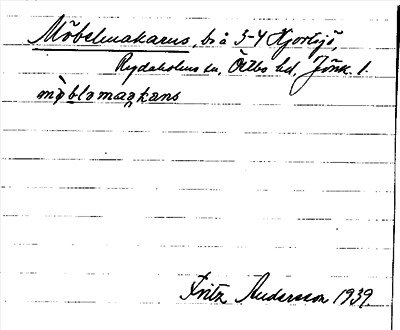 Möbelmakarns, bi å 3-4 Hjortsjö,
Rydaholms sn, Östbo hd, Jönk. l.
mö̀blamaƞkans
Fritz Andersson 1939.